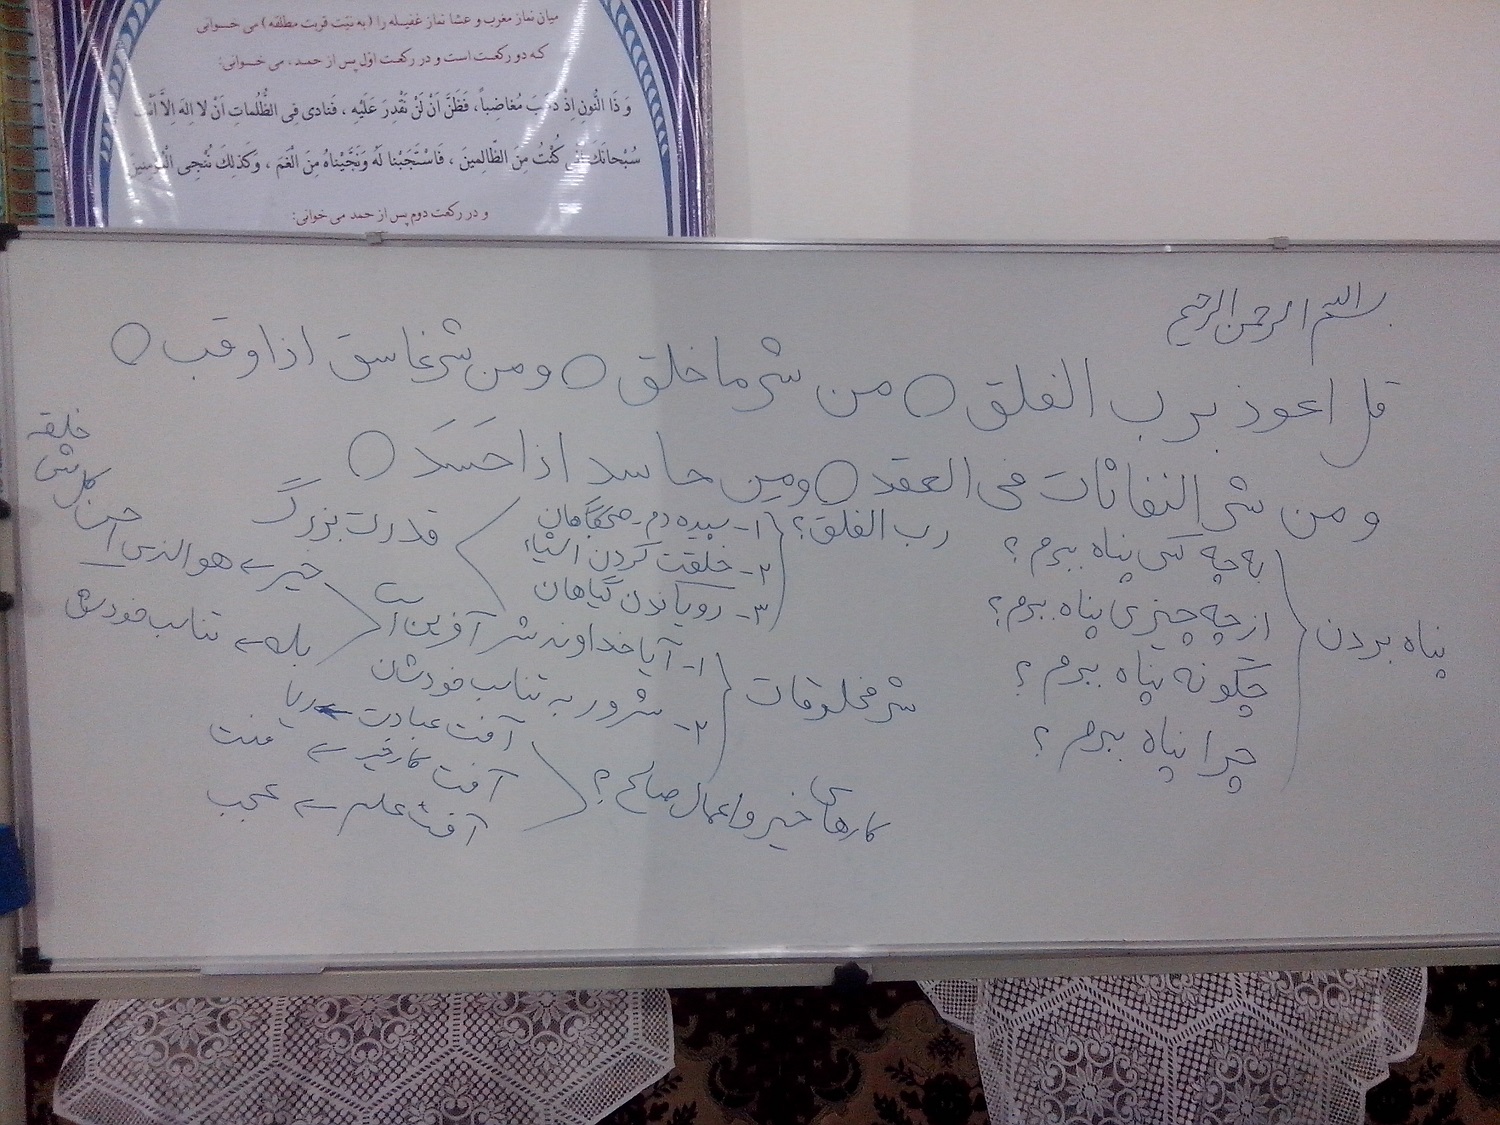 میان نماز مغرب و عشا نماز غفیله را (به نیّت قربت مطلقه) می خـوانی
کـه دو رکعـت است و در رکعت اوّل پس از حمـد، می خـوانی:
وَ ذَا النُّونِ اِذْ ذَهَبَ مُغاضِباً، فَظَنَّ اَنْ لَنْ نَقْدِرَ عَلَيْهِ ، فَنادى فِى الظُّلُماتِ اَنْ لا اِلهَ اِلاَّ اَنْتَ
سُبْحانَكَ اِنّى كُنْتُ مِنَ الظّالِمينَ ، فَاسْتَجَبْنا لَهُ وَنَجَّيْناهُ مِنَ الْغَمِّ ، وَكَذلِكَ نُنْجِى الْمُؤمِنينَ
و در رکعت دوم پس از حمد می خوانی:
بسم الله الرحمن الرحیم
قل اعوذ برب الفلق ○ من شر ما خلق ○ و من شر غاسق اذا وقب ○
و من شر النفاثات فی العقد ○ و من حاسد اذا حَسَدَ ○
پناه بردن
به چه کسی پناه ببرم ؟
از چه چیزی پناه ببرم ؟
چگونه پناه ببرم ؟
چرا پناه ببرم ؟
رب الفلق ؟
۱- سپیده دم - صبحگاهان
۲- خلقت کردن اشیاء
۳- رویاندن گیاهان
قدرت بزرگ
شر مخلوقات
۱- آیا خداوند شر آفرین است
خیر هو الذی احسن کل شی خلقه
بله تناسب خودش
۲- شرور به تناسب خودشان
کارهای خیر و اعمال صالح ؟
آفت عبادت ← ریا
آفت کار خیر ← منت
آفت علم ← عجب